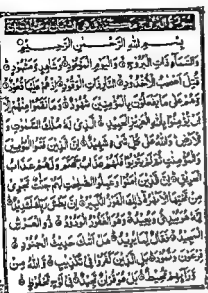 سورة البروج مكية وهي
بسم الله الرحمن الرحيم
والسماء ذات البروج واليوم الموعود وشاهد ومشهود
قتل اصحب الاخدود النار ذات الوقود اذ هم عليها قعود
وهم على ما يفعلون بالمؤمنين شهود وما نقموا منهم الا
ان يؤمنوا بالله العزيز الحميد الذي له ملك السموت
والارض والله على كل شيء شهيد ان الذين فتنوا المؤمنين
والمؤمنت ثم لم يتوبوا فلهم عذاب جهنم ولهم عذاب
الحريق ان الذين امنوا وعملوا الصلحت لهم جنت تجري
من تحتها الانهر ذلك الفوز الكبير ان بطش ربك لشديد انه
هو يبدئ ويعيد وهو الغفور الودود ذو العرش
المجيد فعال لما يريد هل اتك حديث الجنود
فرعون وثمود بل الذين كفروا في تكذيب والله من
ورائهم محيط بل هو قران مجيد في لوح محفوظ